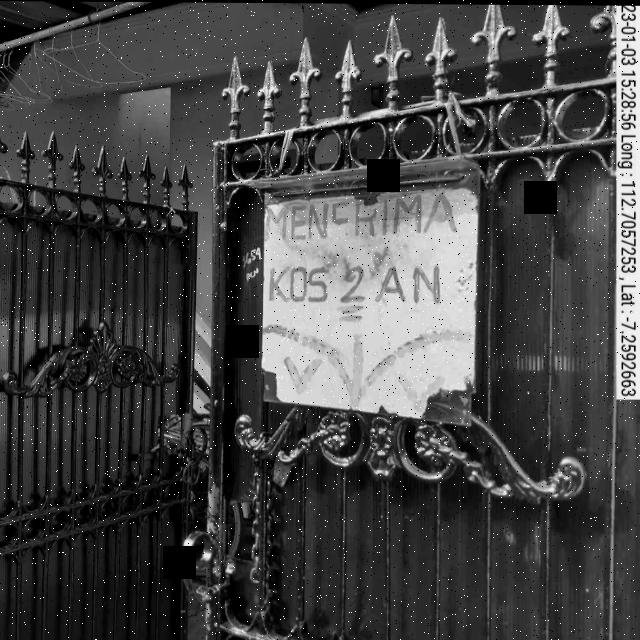 MENERIMA
KOS2AN
23-01-03 15:28:56 Long : 112.7057253 , Lat : -7.2592663